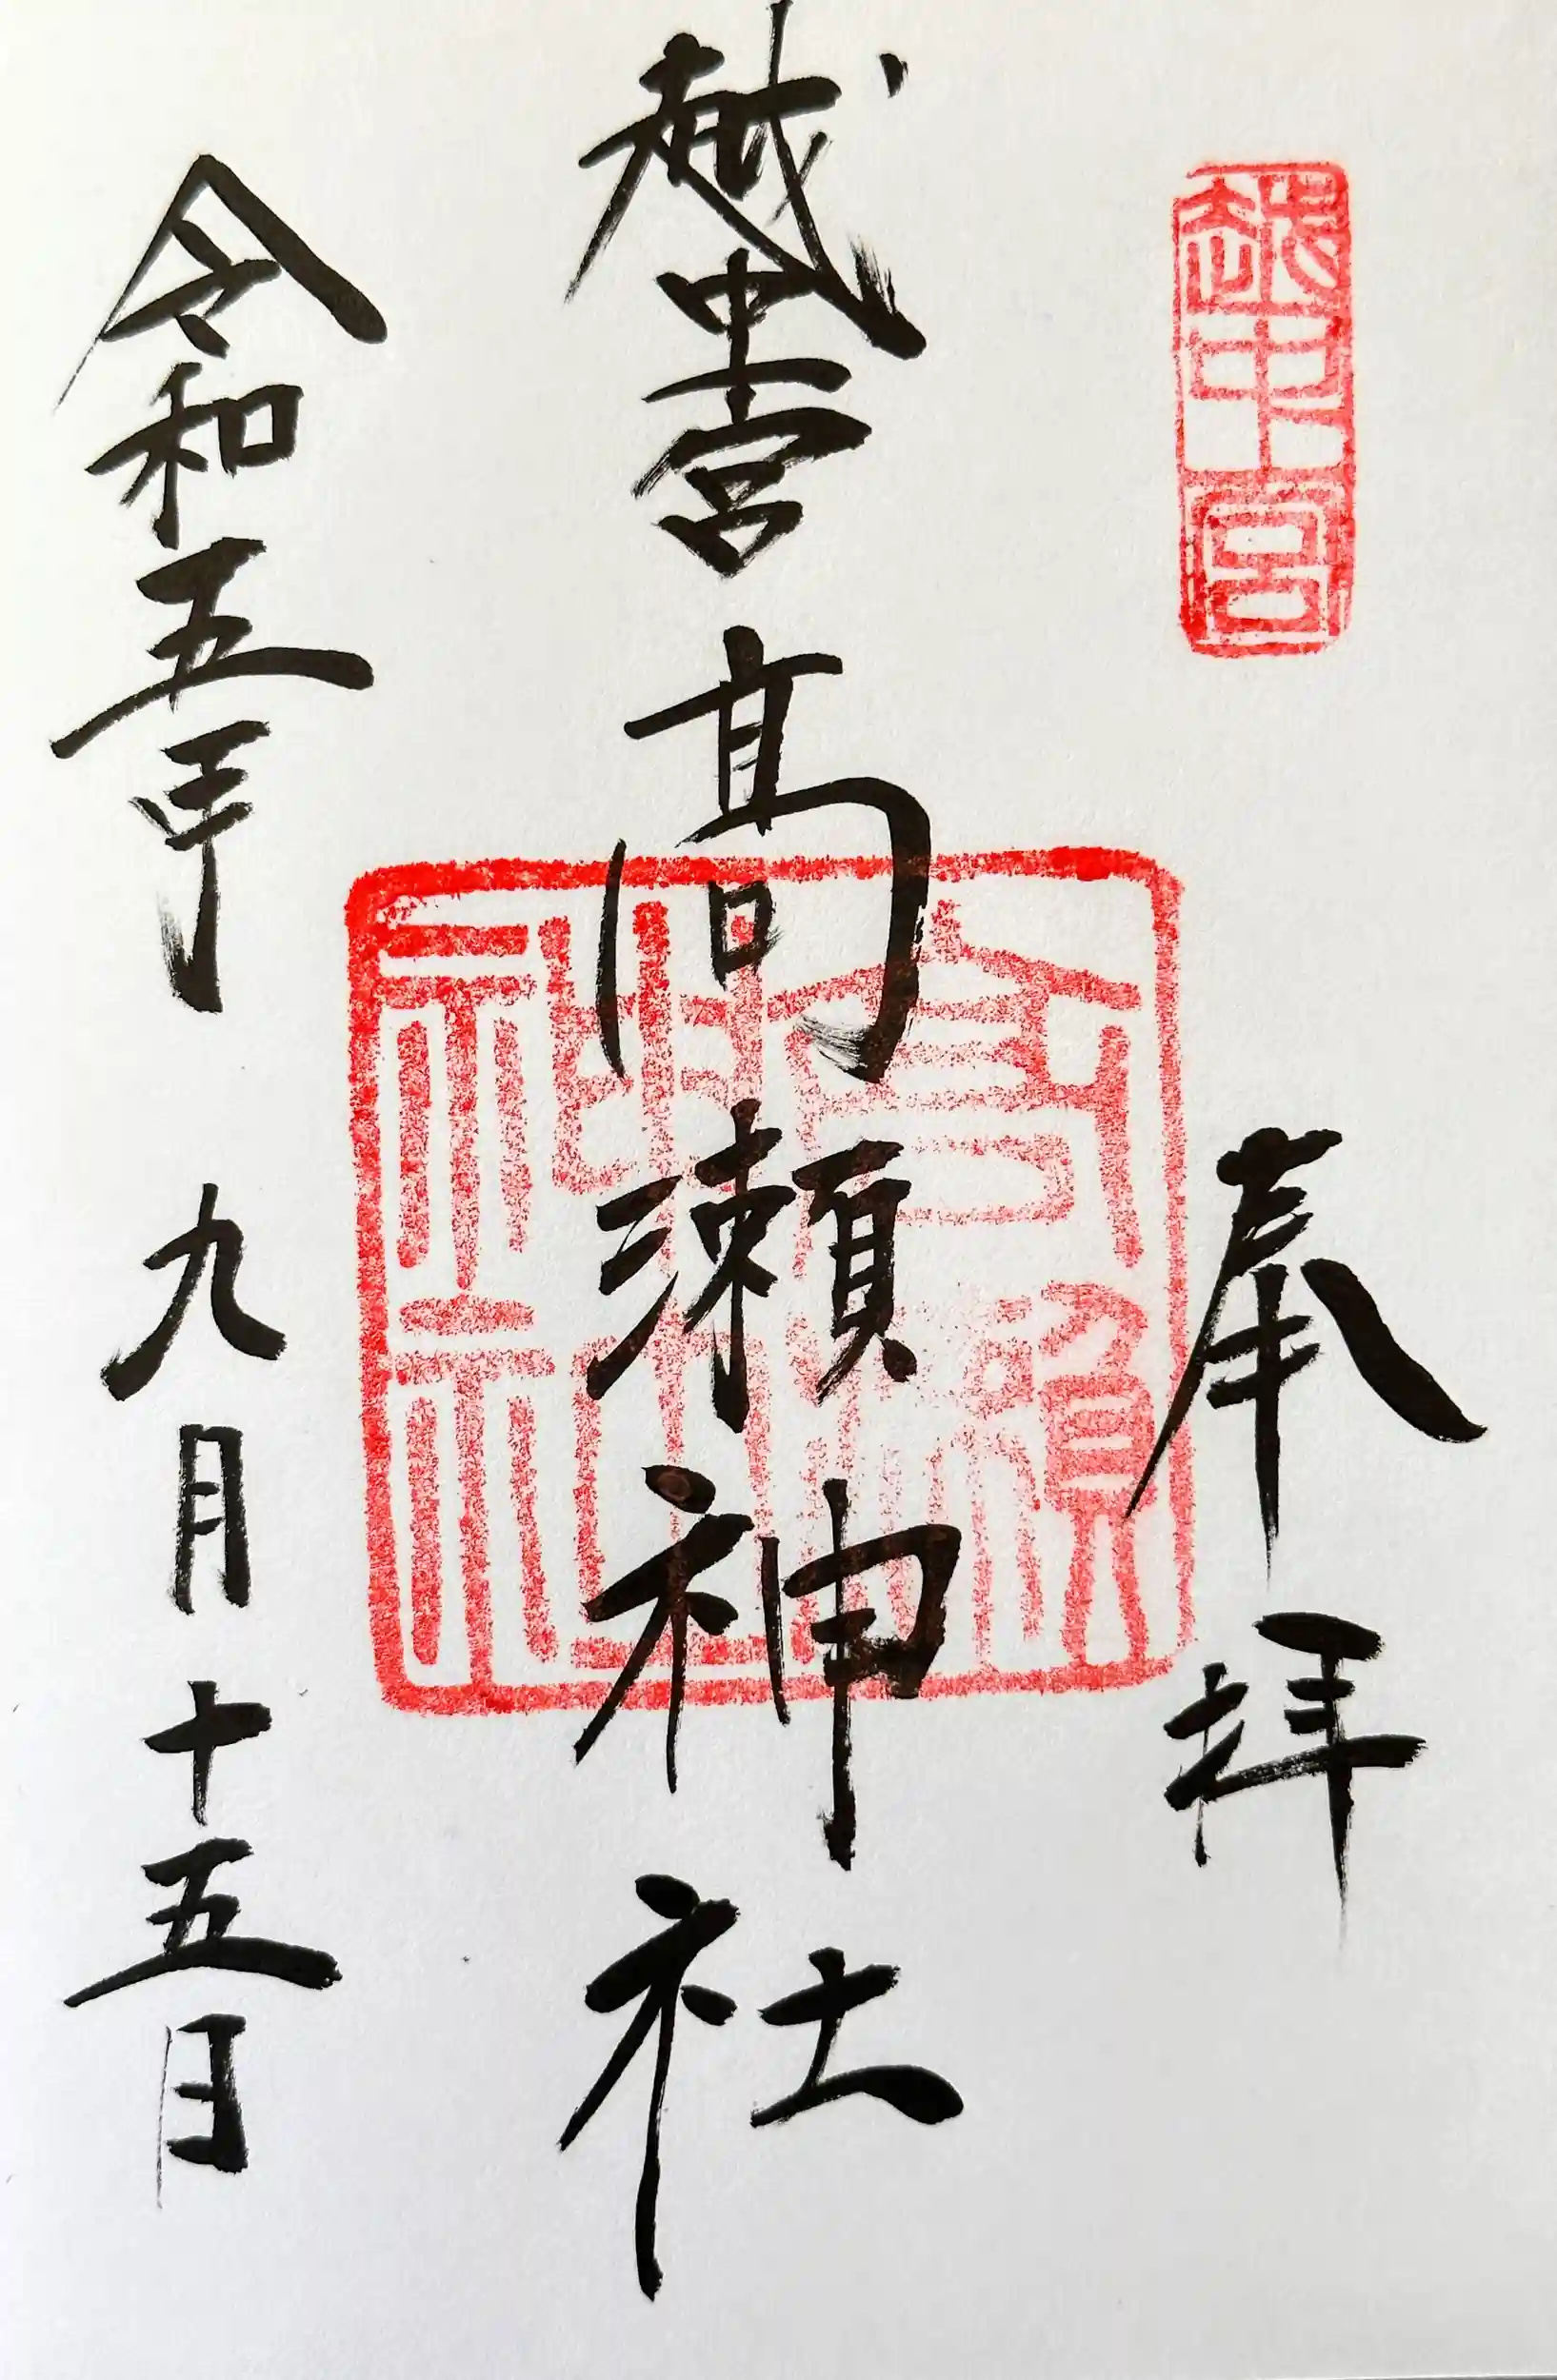 越中宮
奉拝
越中一宮髙瀬神社
高瀬神社
令和五年九月十五日